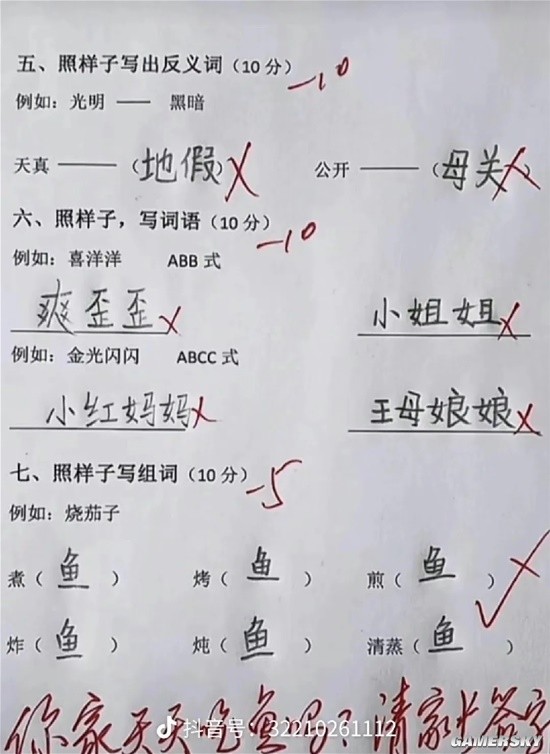 五、照样子写出反义词（10 分） -10
例如：光明 —— 黑暗
天真 ——（地假） 公开 ——（母关）
六、照样子，写词语（10 分） -10
例如：喜洋洋 ABB 式
爽歪歪 小姐姐
例如：金光闪闪 ABCC 式
小红妈妈 王母娘娘
七、照样子写组词（10 分） -5
例如：烧茄子
煮（鱼） 烤（鱼） 煎（鱼）
炸（鱼） 炖（鱼） 清蒸（鱼）
你家天天 鱼 请家长签字
抖音号：32210261112
GAMERSKY